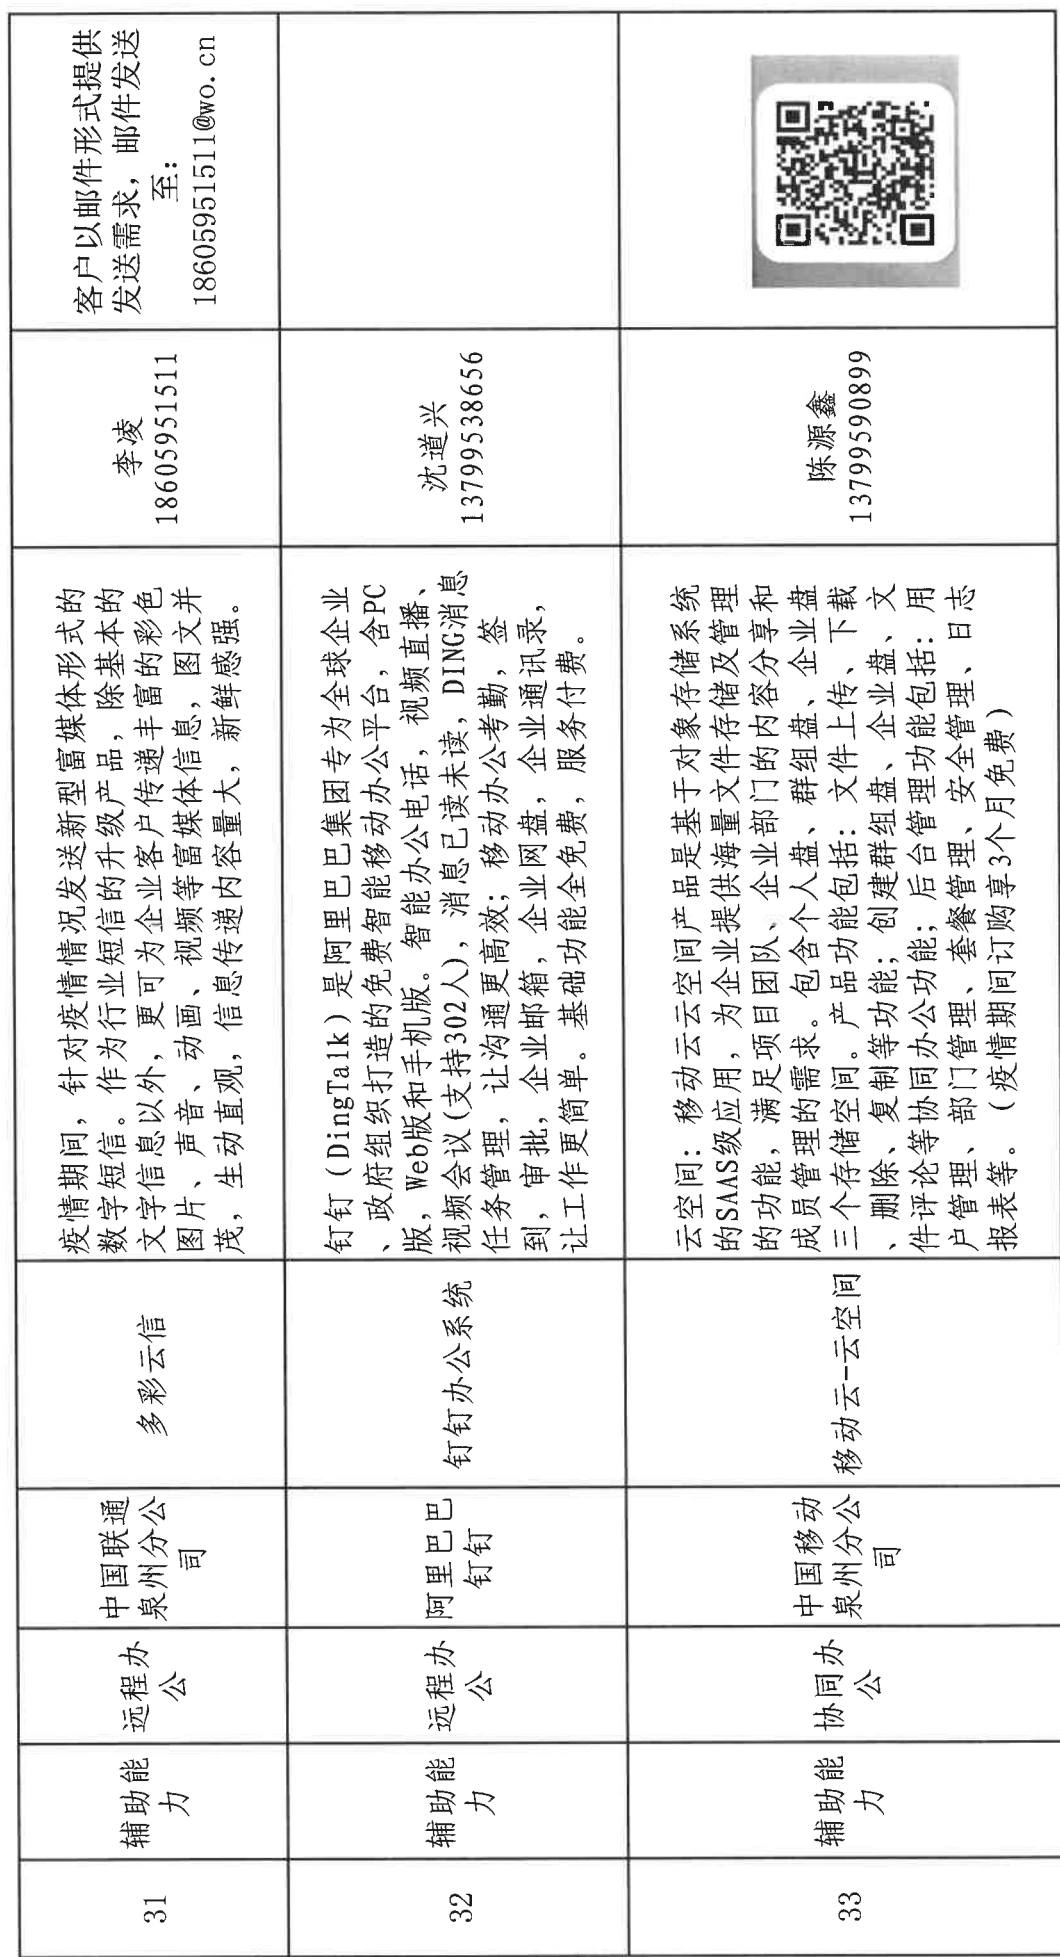 31
辅助能
力
远程办
公
中国联通
泉州分公
司
多彩云信
疫情期间，针对疫情情况发送新型富媒体形式的
数字短信。作为行业短信的升级产品，除基本的
文字信息以外，更可为企业客户传递丰富的彩色
图片、声音、动画、视频等富媒体信息，图文并
茂，生动直观，信息传递内容量大，新鲜感强。
李凌
18605951511
客户以邮件形式提供
发送需求，邮件发送
至：
18605951511@wo.cn
32
辅助能
力
远程办
公
阿里巴巴
钉钉
钉钉办公系统
钉钉（DingTalk）是阿里巴巴集团专为全球企业
、政府组织打造的免费智能移动办公平台，含PC
版，Web版和手机版。智能办公电话，视频直播、
视频会议(支持302人)，消息已读未读，DING消息
任务管理，让沟通更高效；移动办公考勤，签
到，审批，企业邮箱，企业网盘，企业通讯录，
让工作更简单。基础功能全免费，服务付费。
沈道兴
13799538656
33
辅助能
力
协同办
公
中国移动
泉州分公
司
移动云-云空间
云空间：移动云云空间产品是基于对象存储系统
的SAAS级应用，为企业提供海量文件存储及管理
的功能，满足项目团队、企业部门的内容分享和
成员管理的需求。包含个人盘、群组盘、企业盘
三个存储空间。产品功能包括：文件上传、下载
、删除、复制等功能；创建群组盘、企业盘、文
件评论等协同办公功能；后台管理功能包括：用
户管理、部门管理、套餐管理、安全管理、日志
报表等。（疫情期间订购享3个月免费）
陈源鑫
13799590899